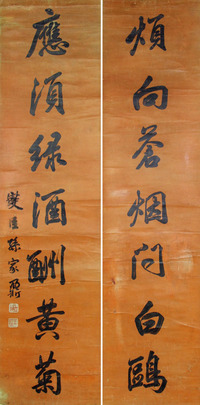 煩向蒼烟問白鷗
應須綠酒酬黃菊
孫家鼐